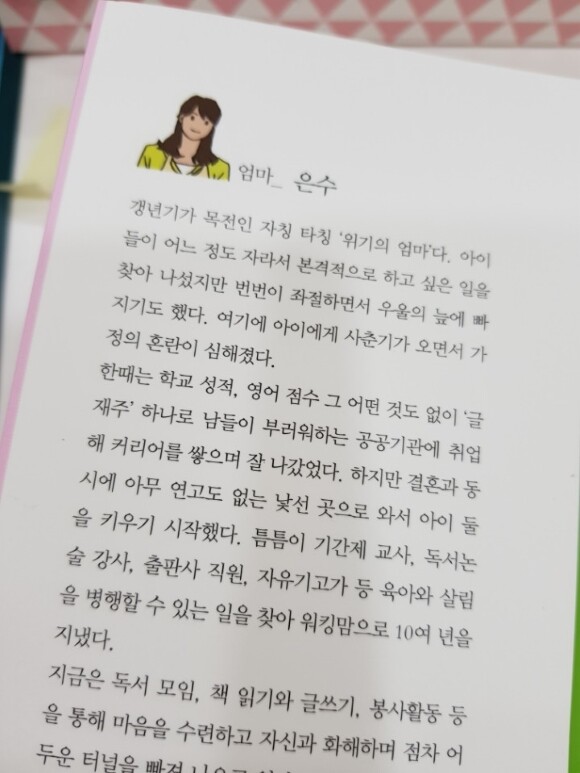 엄마_ 은수
갱년기가 목전인 자칭 타칭 '위기의 엄마'다. 아이
들이 어느 정도 자라서 본격적으로 하고 싶은 일을
찾아 나섰지만 번번이 좌절하면서 우울의 늪에 빠
지기도 했다. 여기에 아이에게 사춘기가 오면서 가
정의 혼란이 심해졌다.
한때는 학교 성적, 영어 점수 그 어떤 것도 없이 '글
재주' 하나로 남들이 부러워하는 공공기관에 취업
해 커리어를 쌓으며 잘 나갔었다. 하지만 결혼과 동
시에 아무 연고도 없는 낯선 곳으로 와서 아이 둘
을 키우기 시작했다. 틈틈이 기간제 교사, 독서논
술 강사, 출판사 직원, 자유기고가 등 육아와 살림
을 병행할 수 있는 일을 찾아 워킹맘으로 10여 년을
지냈다.
지금은 독서 모임, 책 읽기와 글쓰기, 봉사활동 등
을 통해 마음을 수련하고 자신과 화해하며 점차 어
두운 터널을 빠져